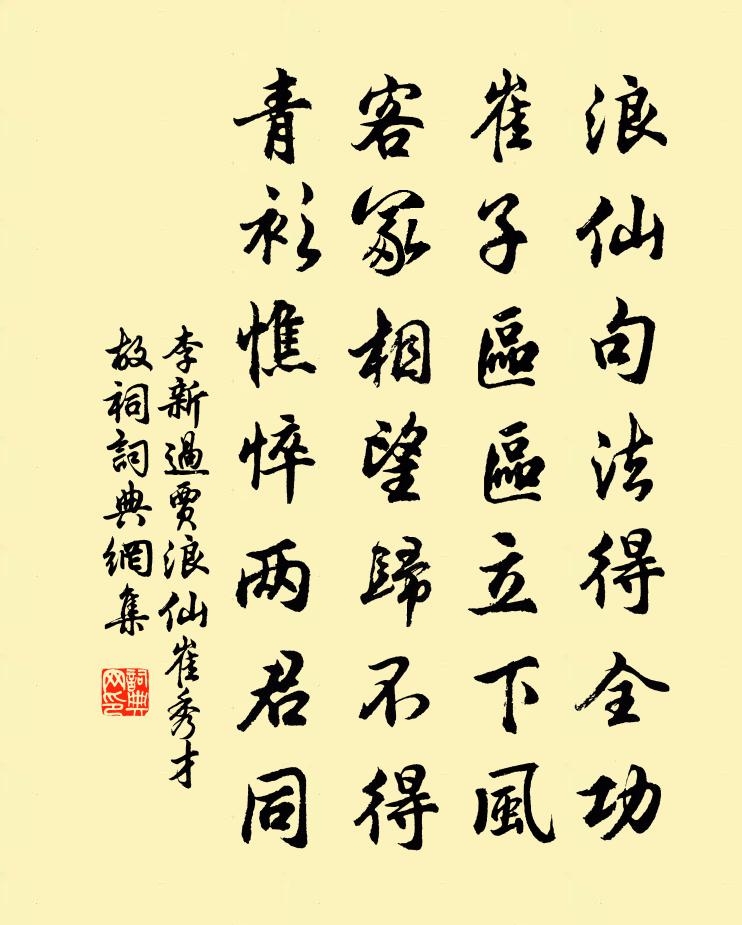 浪仙句法得全功
崔子區區立下風
客冢相望歸不得
青衫憔悴两君同
李新過賈浪仙崔秀才
故祠詞典網集
詞典
网印